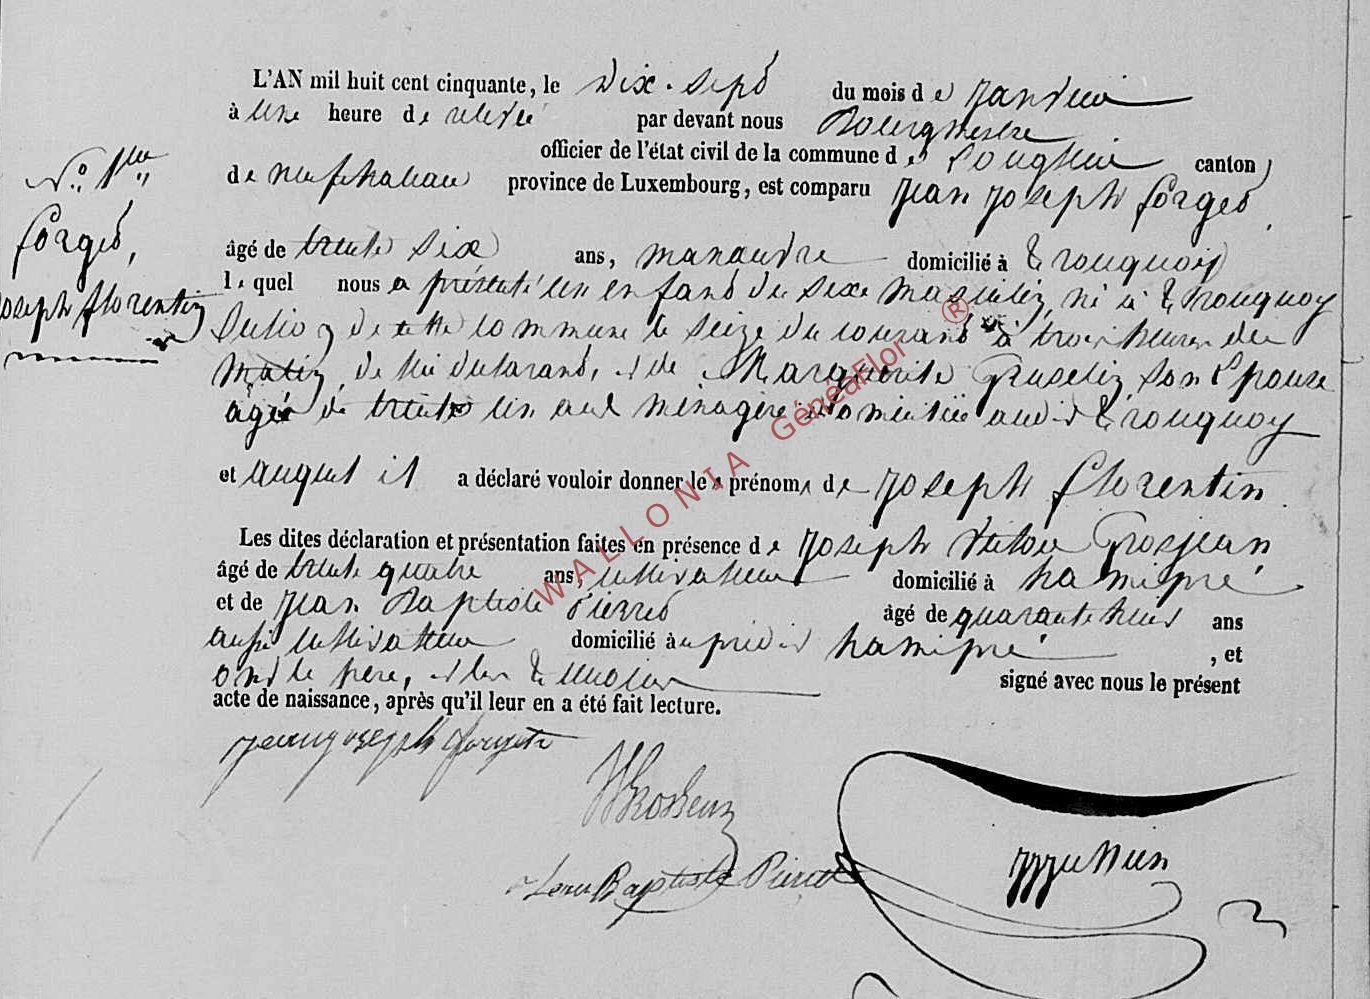 L'AN mil huit cent cinquante, le dix-sept du mois de janvier
à une heure de relevée par devant nous Bourgmestre
officier de l'état civil de la commune de Longlier canton
de neufchateau province de Luxembourg, est comparu Jean Joseph forget
N.º 1er
forget,
Joseph florentin
âgé de trente six ans, manœuvre domicilié à tronquoy
lequel nous a présenté un enfant du sexe masculin, né à tronquoy
section de cette commune le seize du courant à trois heures du
matin, de lui déclarant, et de Marguerite son épouse
agée de trente un ans ménagère domiciliée audit tronquoy
et auquel il a déclaré vouloir donner les prénoms de Joseph florentin
Les dites déclaration et présentation faites en présence de Joseph Grosjean
âgé de trente quatre ans, cultivateur domicilié à hamipré
et de Jean Baptiste Pierret âgé de quarante ans
aussi cultivateur domicilié à hamipré, et
ont le père, et les témoins signé avec nous le présent
acte de naissance, après qu'il leur en a été fait lecture.
jean joseph forget
Jean Baptiste Pierret
WALLONIA GénéaFlor ®